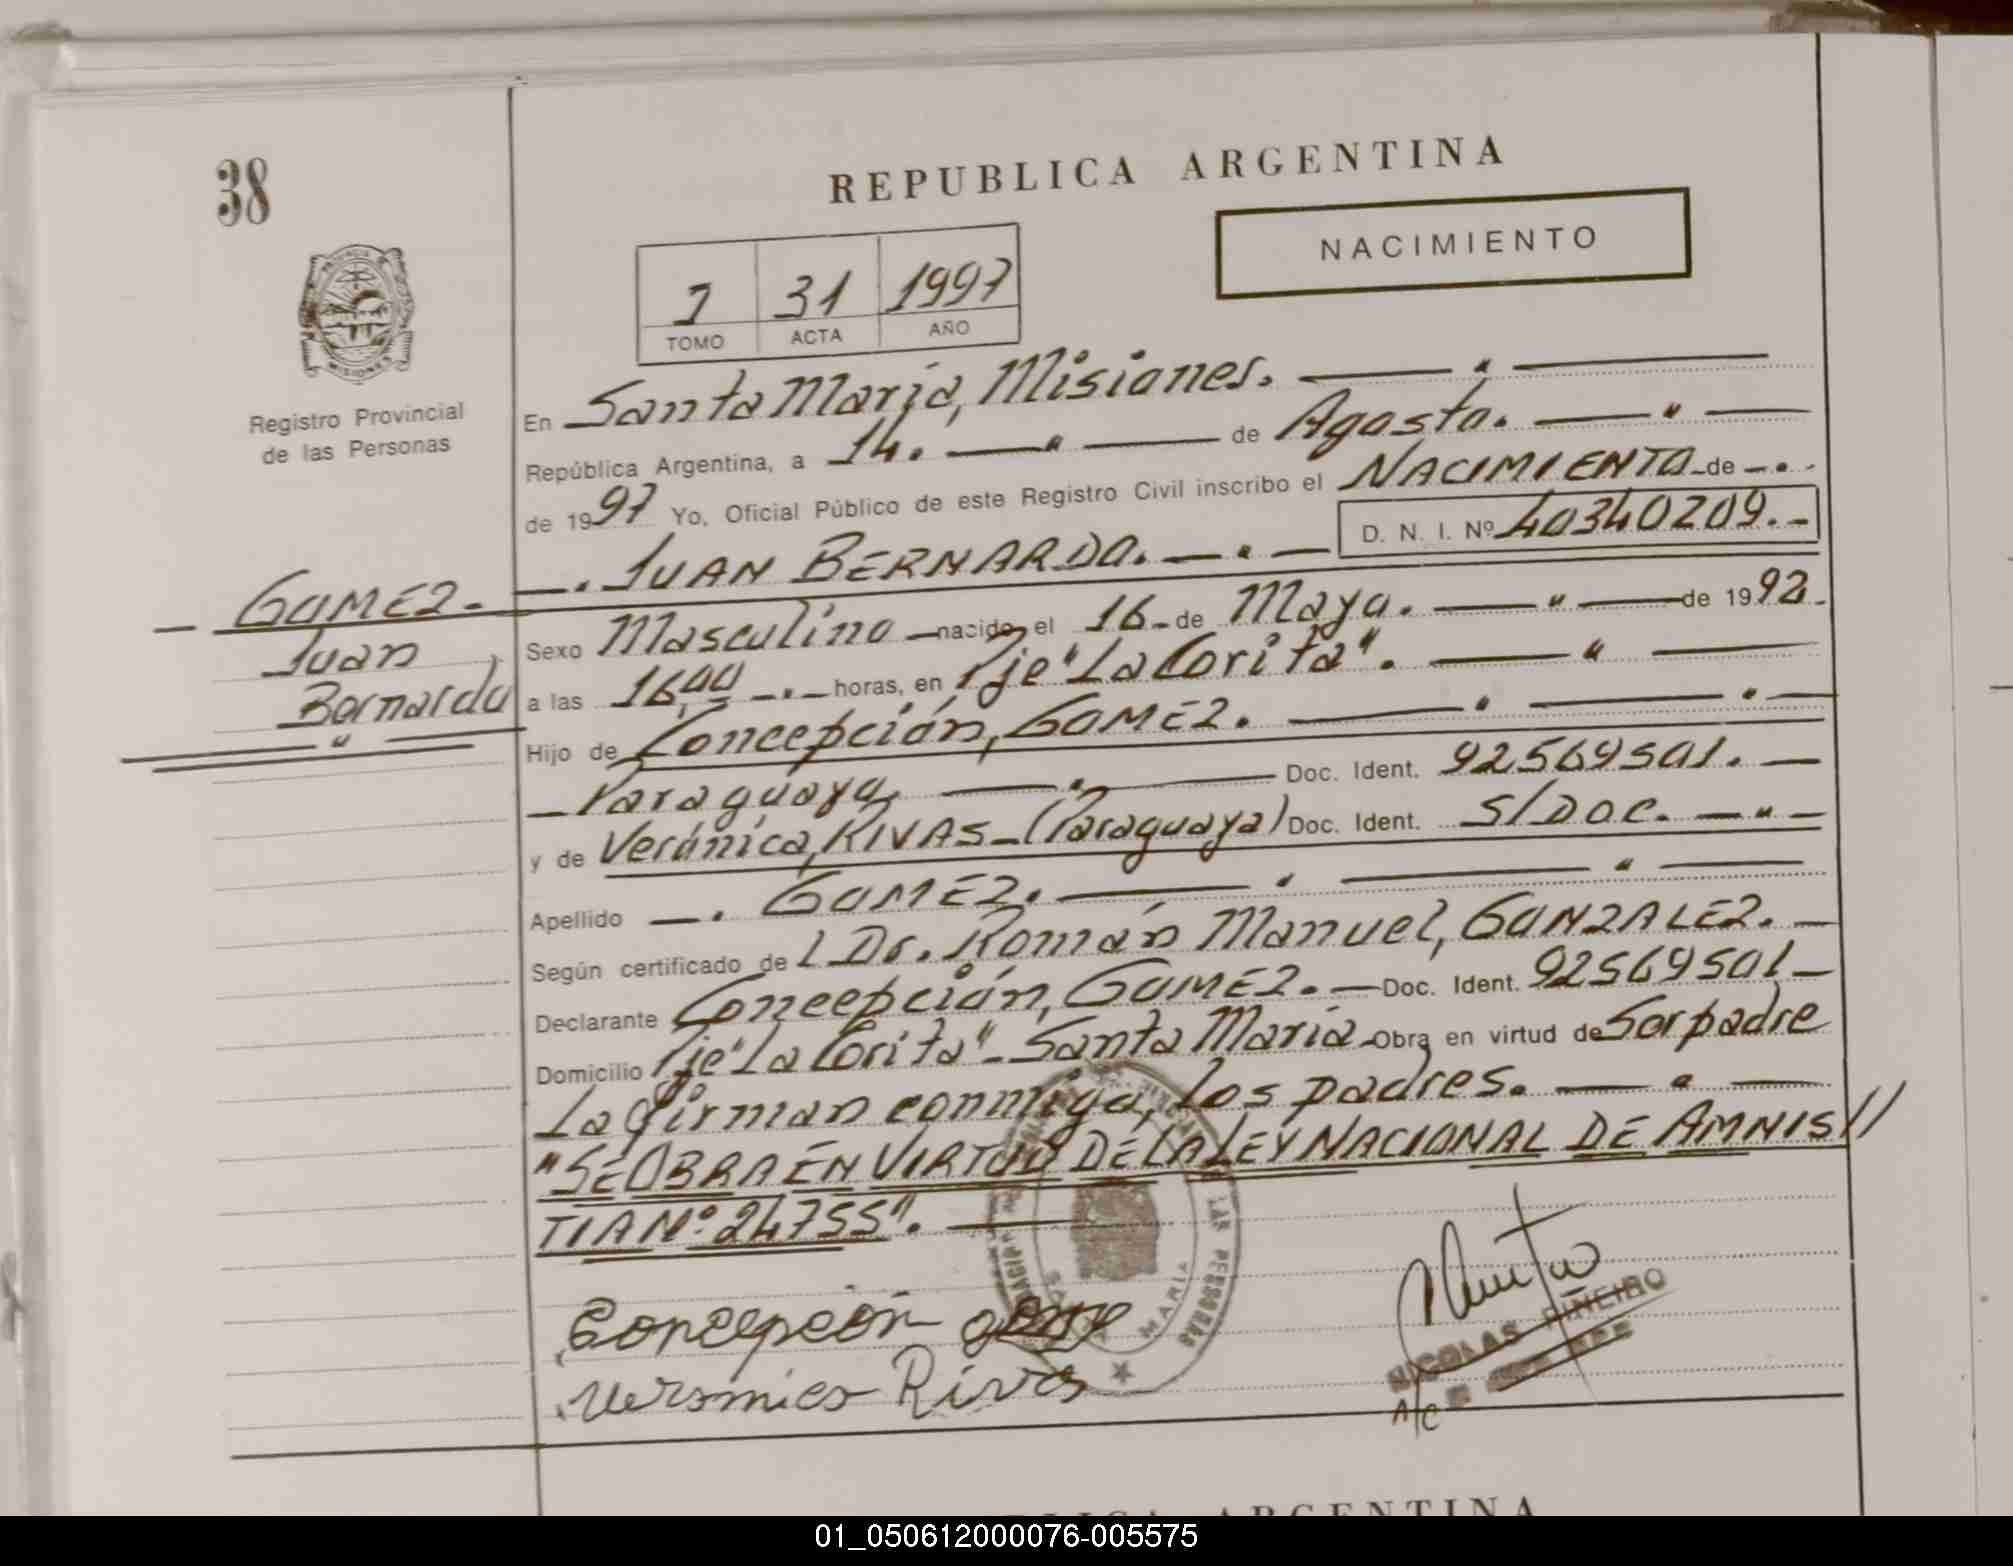 38
REPUBLICA ARGENTINA
NACIMIENTO
1 31 1997
TOMO ACTA AÑO
PROVINCIA DE
MISIONES
Registro Provincial
de las Personas
En Santa María, Misiones. — " —
República Argentina, a 14. — " — de Agosto. — " —
de 1997 Yo, Oficial Público de este Registro Civil inscribo el NACIMIENTO de —.
D. N. I. Nº 40340209.-
—. JUAN BERNARDO. —.—
GOMEZ.-
Juan
Bernardo
— " —
Sexo Masculino — nacido el 16 - de Mayo. — " — de 1992.
a las 16,00 —.— horas, en Pje "La Corita". — " —
Hijo de Concepción, GOMEZ. — . — . —
— Paraguaya. — . — Doc. Ident. 92569501. —
y de Verónica, RIVAS — (Paraguaya) Doc. Ident. S/DOC. — " —
Apellido —. GOMEZ. — . — " —
Según certificado de l Dr. Román Manuel, GONZALEZ. —
Declarante Concepción, GOMEZ. — Doc. Ident. 92569501 —
Domicilio Pje "La Corita" - Santa María - Obra en virtud de Ser padre
La firman conmigo, los padres. — " —
"SE OBRA EN VIRTUD DE LA LEY NACIONAL DE AMNIS//
TIA Nº 24755". —
LAS PERSONAS
MARIA
Concepción
Veronica Rivas
NICOLAS PIÑEIRO
A/C
ARGENTINA
01_050612000076-005575